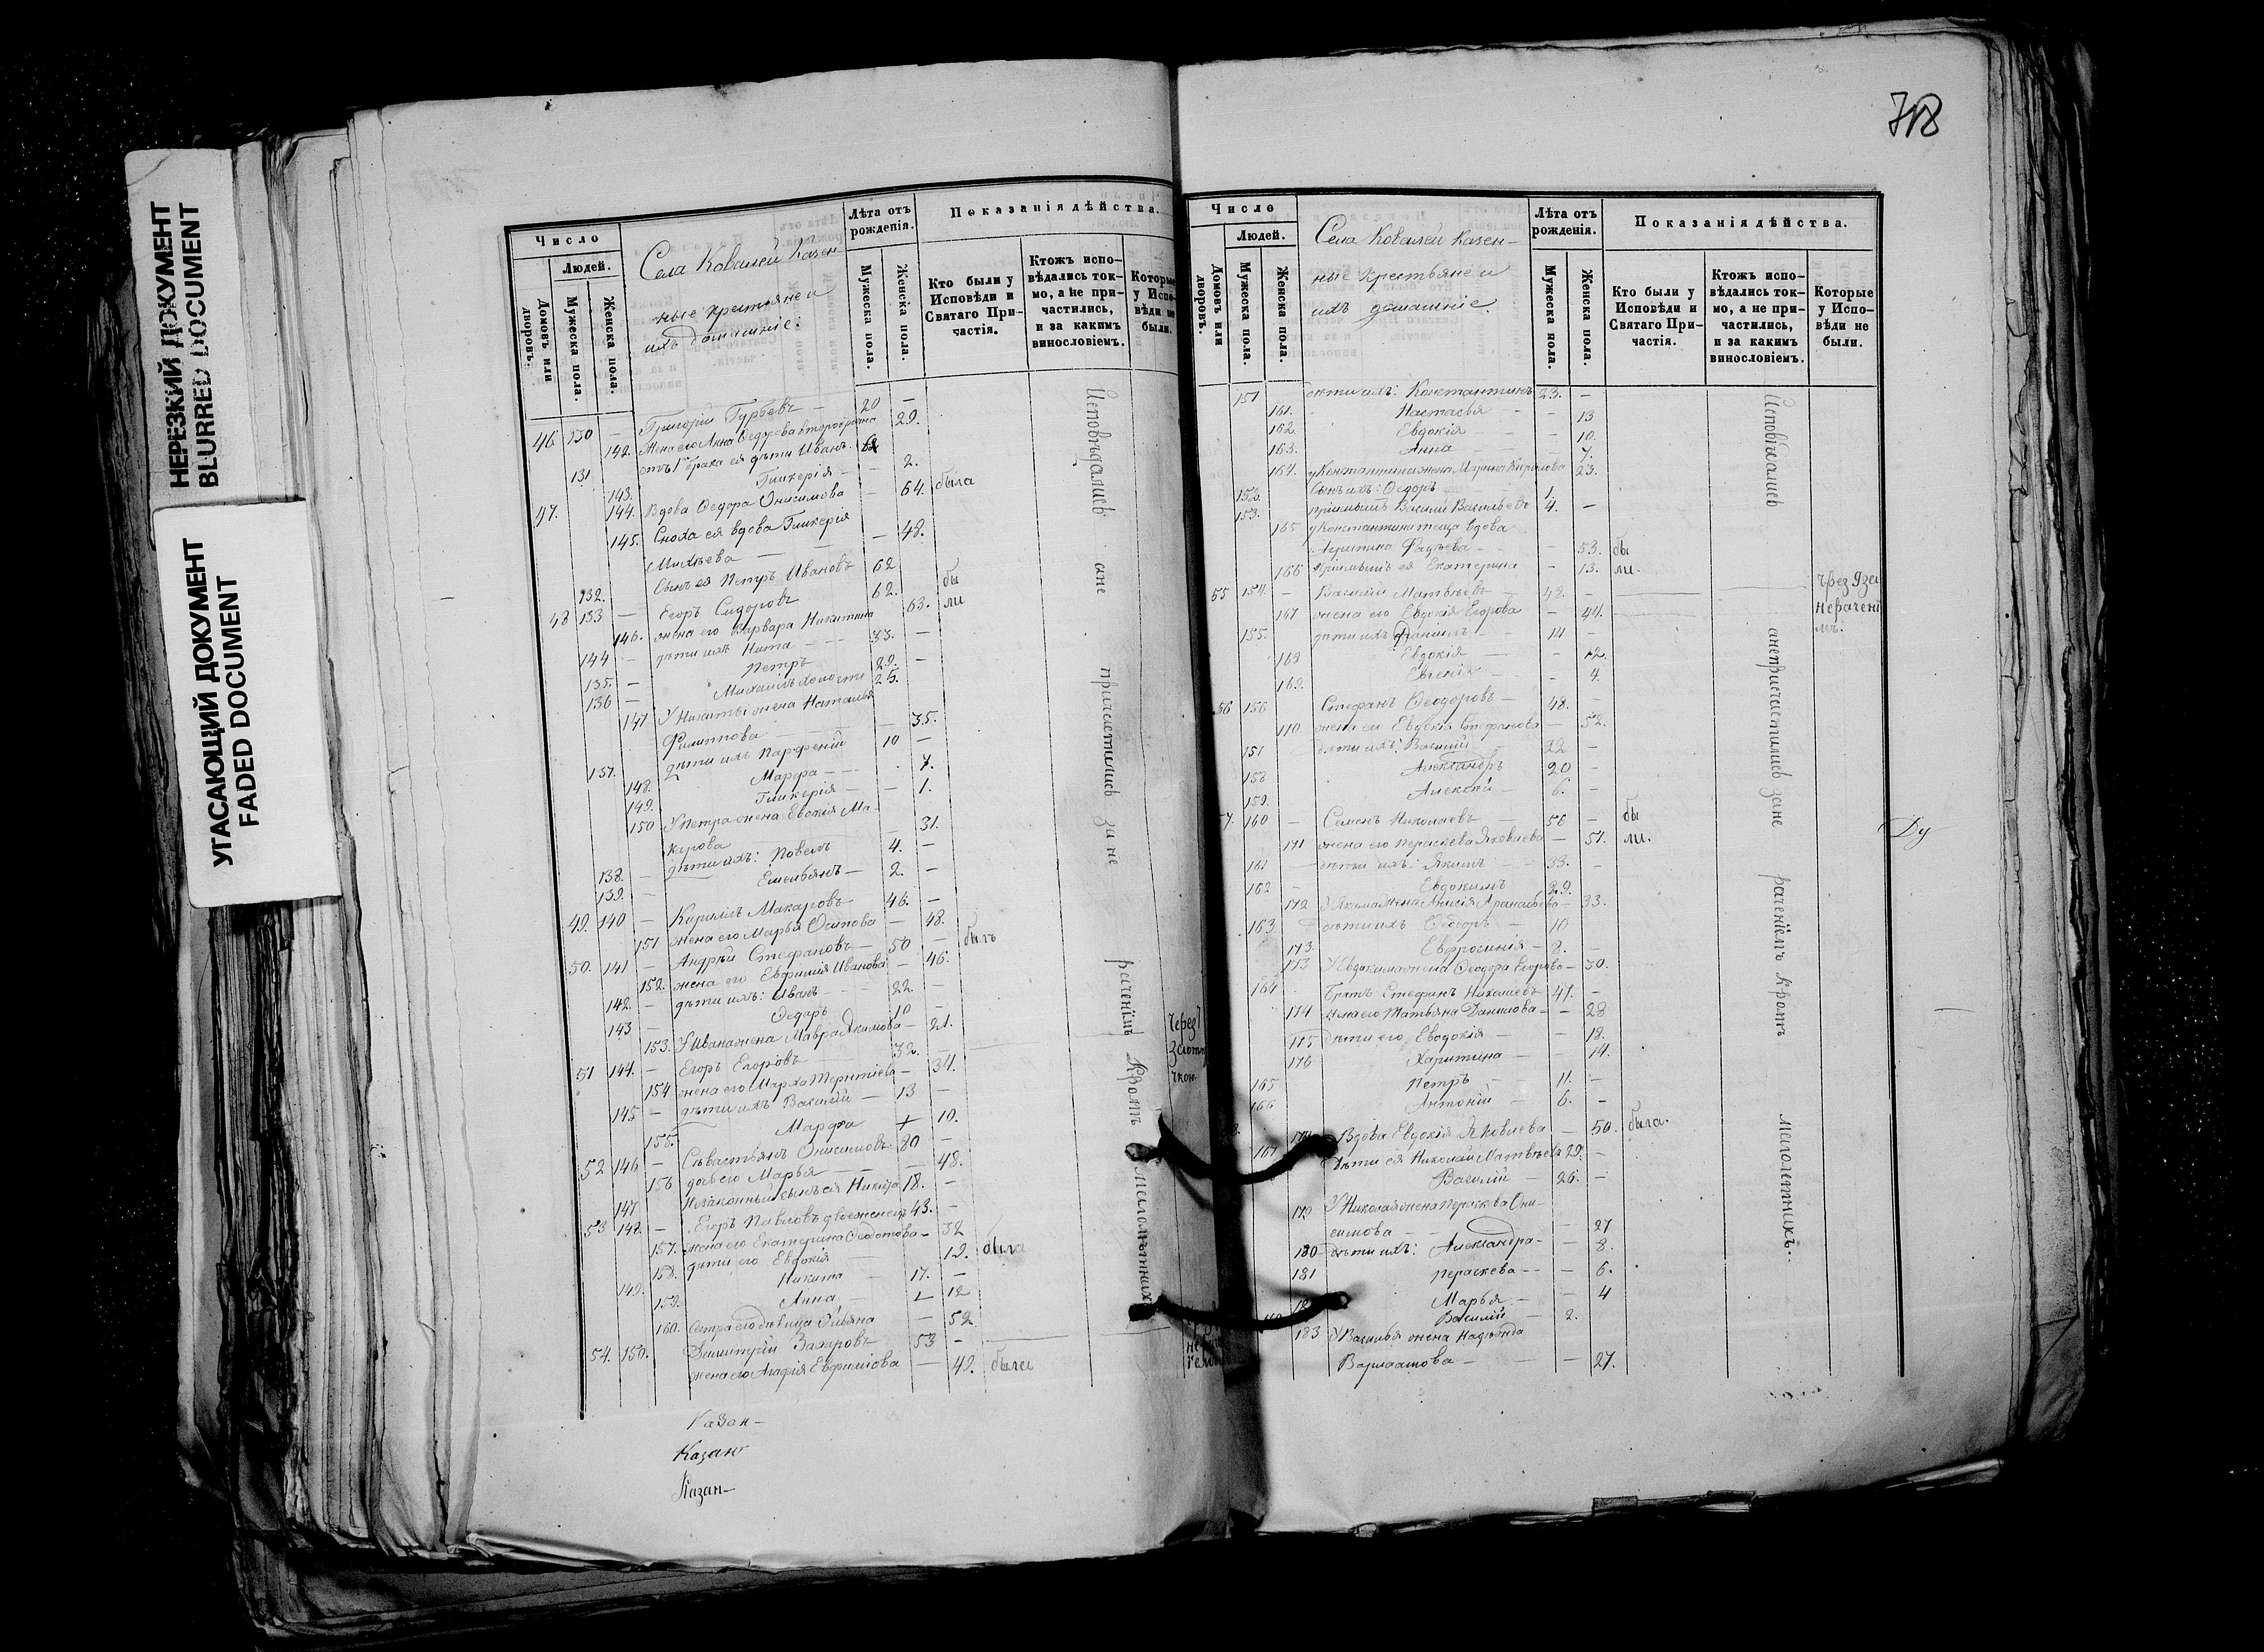 НЕРЕЗКИЙ ДОКУМЕНТ
BLURRED DOCUMENT
УГАСАЮЩИЙ ДОКУМЕНТ
FADED DOCUMENT
Число
Людей.
Домовъ или дворовъ.
Мужеска пола.
Женска пола.
Села Ковалей Казен-
ные крестьяне и
ихъ домашніе:
Лѣта отъ рожденія.
Мужеска пола.
Женска пола.
Показанія дѣйства.
Кто были у Исповѣди и Святаго Причастія.
Ктожъ исповѣдались токмо, а не причастились, и за какимъ винословіемъ.
Которые у Исповѣди не были.
46 130 — Григорій Гурьевъ — 20 —
142. Жена его Анна Федорова второбрачна 29.
131 отъ 1 брака ея дѣти Иванъ.
143. Гликерія — — 2.
47. 144. Вдова Федора Онисимова — 64. была
145. Сноха ея вдова Гликерія
Михѣева — — 48.
132. Сынъ ея Петръ Ивановъ 62
48 133 — Егоръ Сидоровъ 62. бы
146. жена его Варвара Никитина 63. ли
144 — дѣти ихъ Никита — 33. —
135. — Петръ 29. —
136 — Михаилъ холости 25.
147 У Никиты жена Наталья
Филиппова — 35.
137. дѣти ихъ Парфеній 10 —
148. Марфа — 7.
149. Гликерія — — 1.
150 У Петра жена Евдокія Ма-
карова 31.
138. — дѣти ихъ: Павелъ 4. —
139. — Емельянъ — 2. —
49. 140 — Кириллъ Макаровъ 46. —
151 жена его Марья Осипова — 48.
50. 141 — Андрей Стефановъ — 50 — былъ
152. жена его Евфимія Иванова — 46.
142. — дѣти ихъ: Иванъ — 22. —
143 — Федоръ 10
153. У Ивана жена Мавра Якимова — 21.
51 144. — Егоръ Егоровъ 32. —
154 жена его Марѳа Терентіева — 34.
145 — дѣти ихъ Василій — 13 —
155. Марфа + 10.
52 146 — Севастьянъ Онисимовъ 80 —
156 дочь его Марья — — 48.
147 Незаконный сынъ ея Никита 18. —
53 148. — Егоръ Павловъ двоеженецъ 43. —
157. жена его Екатерина Федотова — 32
158. дѣти его Евдокія 19. была
149. Никита — 17. —
159. Анна — 12
160. Сестра его дѣвица Ульяна — 52
54. 150. Димитрій Захаровъ 53 —
жена его Агафія Евфимова — 49. была
Исповѣдались а не причастились за нераченіемъ Кромѣ малолѣтнихъ
Казан-
Казан
Казан-
718
Число
Людей.
Домовъ или дворовъ.
Мужеска пола.
Женска пола.
Села Ковалей Казен-
ные крестьяне и
ихъ домашніе.
Лѣта отъ рожденія.
Мужеска пола.
Женска пола.
Показанія дѣйства.
Кто были у Исповѣди и Святаго Причастія.
Ктожъ исповѣдались токмо, а не причастились, и за какимъ винословіемъ.
Которые у Исповѣди не были.
151 дѣти ихъ: Константинъ 23. —
161. Настасья — — 13
162. Евдокія — — 10.
163. Анна — — 7.
164. у Константина жена Марина Кирилова 23.
152. Сынъ ихъ: Федоръ 1.
153. пріимышъ Василій Васильевъ 4. —
165 у Константина теща вдова
Агрипина Фадѣева — — 53. бы
166 пріимышъ ея Екатерина — 13. ли.
55 154. — Василій Матвѣевъ — 48. —
167 жена его Евдокія Егорова — 44.
155. дѣти ихъ Даниилъ 14 —
168 Евдокія — — 12.
169. Евгенія — 4.
56 156 Стефанъ Феодоровъ — 48.
170 жена его Евдокія Стефанова — 52.
157 дѣти ихъ: Василій 22 —
158 Александръ 20 —
159. Алексѣй — 6. —
57. 160 — Семенъ Николаевъ — 56 — бы
171 жена его Параскева Яковлева — 51. ли.
161 — дѣти ихъ: Якимъ — 33. —
162 — Евдокимъ 29.
172 У Якима жена Анисія Афанасьева — 33.
163 дѣти ихъ Федоръ — 10
173. Евфросинія — 8. —
173 У Евдокима жена Феодора Егорова — 30.
164 Братъ Стефанъ Николаевъ 47. —
174 жена его Татьяна Данилова — 28
175 дѣти его, Евдокія — 18.
176 Харитина — 14.
165 Петръ — 11. —
166 Антоній — 6. —
Вдова Евдокія Яковлева — 50. была.
167 дѣти ея Николай Матвѣевъ 29. —
Василій — 26. —
179 У Николая жена Параскева Они-
симова — — 27
180 дѣти ихъ: Александра — — 8.
181 Параскева — — 6.
Марья — — 4
Василій — 2.
183 У Василья жена Надежда
Варлаамова — — 27.
Исповѣдались а не причастились за нераченіемъ Кромѣ малолѣтнихъ.
Ду